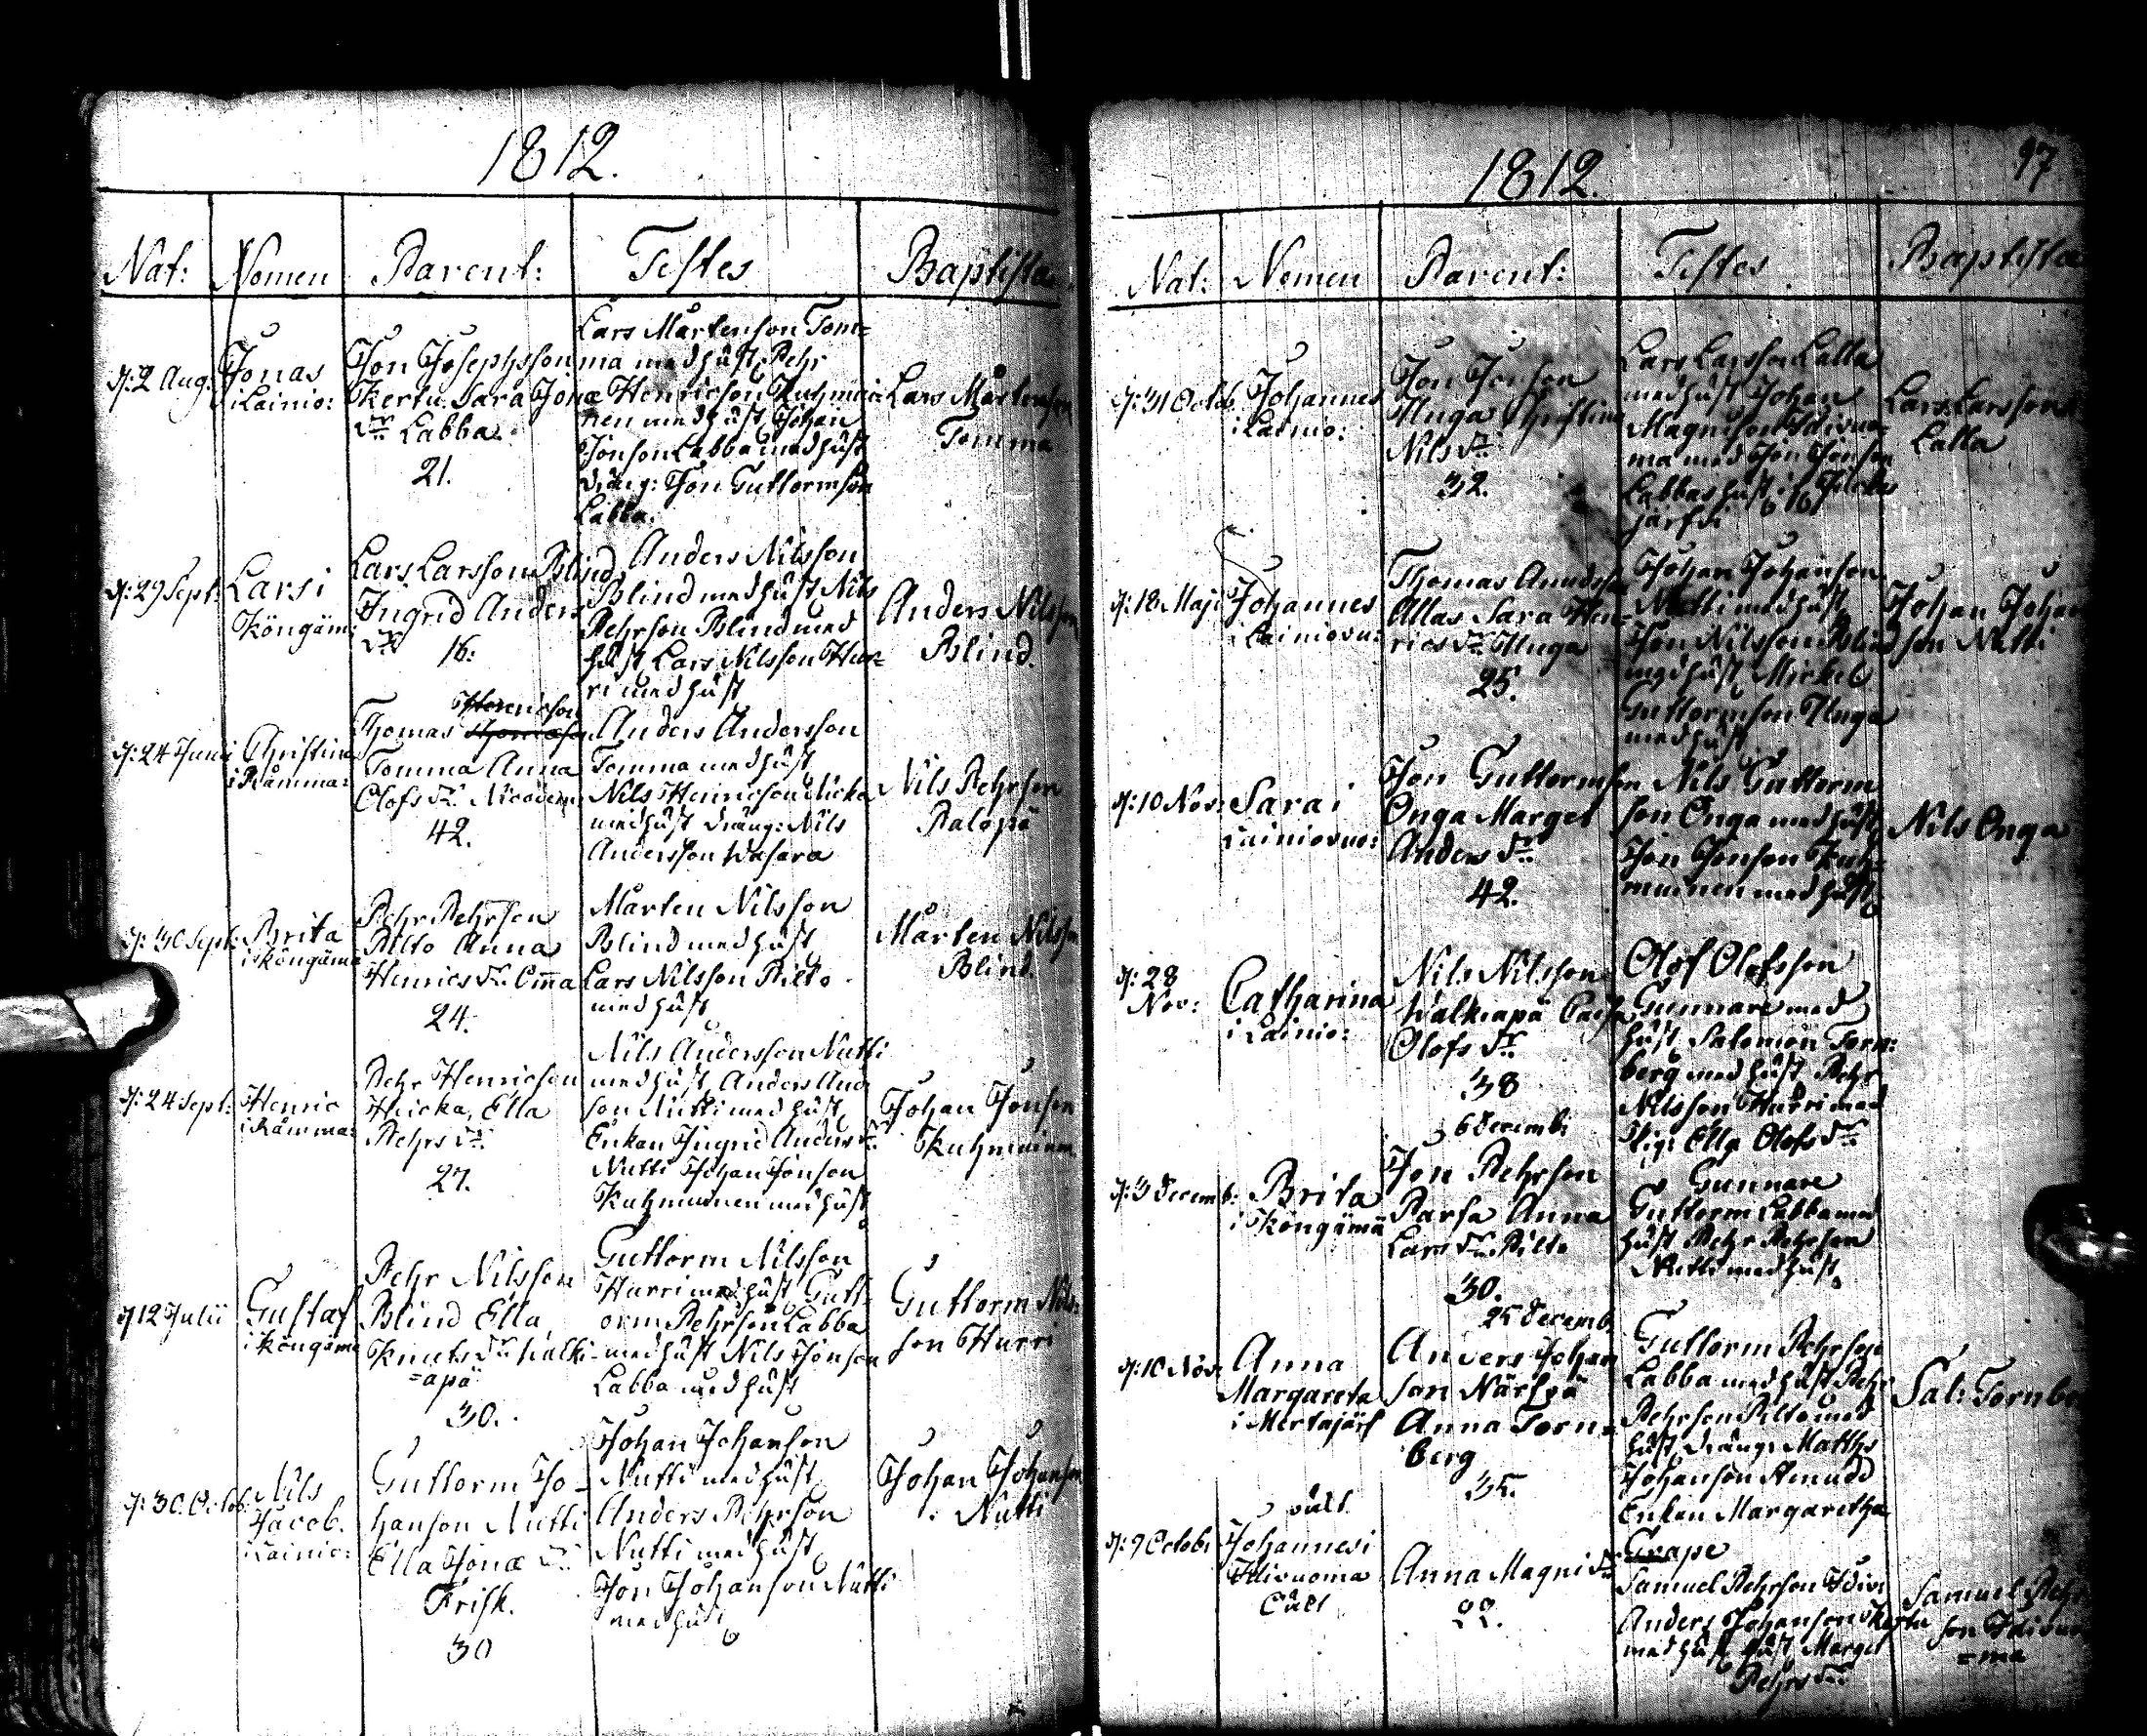 1812.
Nat: Nomen Parent: Testes Baptista
d: 2 Aug: Jonas
i Lainio:
Jon Josephsson
Kertu. Sara Jonæ
dr Labba.
21.
Lars Mårtenson Tom=
ma med hust. Pehr
Henricson Kuhmui=
nen med hust, Johan
Jonson Labba med hust
dräng: Jon Guttormson
Labba.
Lars Mårtenson
Tomma
d: 29 Sept: Lars i
Köngämä
Lars Larsson Blind
Ingrid Anders
dr 16:
Anders Nilsson
Blind med hust Nils
Pehrson Blind med
hust Lars Nilsson Hur=
ri med hust
Anders Nilsson
Blind.
d: 24 Junii Christina
i Råmma:
Henricson
Thomas
Tomma Anna
Olofs dr
42.
Anders Andersson
Tomma med hust
Nils Henricson Kicka
med hust dräng: Nils
Andersson Wasara
Nils Pehrson
Palopä
d: 30 Sept: Brita
i Köngämä
Pehr Pehrson
Pilto Anna
Henrics dr Omma
24.
Mårten Nilsson
Blind med hust
Lars Nilsson Pilto
med hust
Mårten Nilsson
Blind.
d: 24 Sept: Henric
i Råmma:
Pehr Henricson
Kicka, Ella
Pehrs dr
27.
Nils Andersson Nutti
med hust, Anders And
son Nutti med hust
Enkan Ingrid Anders dr
Nutti Johan Jonson
Kuhmuinen med hust
Johan Jonson
Kuhmuinen
d 12 Julii Gustaf
i Köngämä
Pehr Nilsson
Blind Ella
Knuts dr Walki
=apä
30.
Guttorm Nilsson
Hurri med hust Gutt=
orm Pehrson Labba
med hust Nils Jonson
Labba med hust
Guttorm Nils=
son Hurri
d: 30. Octob: Nils
Jacob.
i Lainio:
Guttorm Jo=
hanson Nutti
Ella Jonæ dr
Frisk.
30
Johan Johanson
Nutti med hust
Anders Pehrson
Nutti med hust
Jon Johanson Nutti
med hust
Johan Johanson
Nutti
1812. 97
Nat: Nomen Parent: Testes Baptista
d: 31 Octob. Johannes
i Lainio:
Jon Jonson
Unga Christina
Nils dr
32.
Lars Larsson Lalla
med hust Johan
Magnison Idivuo
ma med Jon Jonson
Labbas hust
järfvi
Lars Larsson
Lalla
d: 18 Maji Johannes
i Lainiovu:
Thomas Andersson
Allas Sara Hen=
rics dr Unga
25.
Johan Johanson
Nutti med hust
Jon Nilsson Blind
med hust Mickel
Guttormson Unga
med hust
Johan Johan
son Nutti
d: 10 Nov: Sara i
Lainiovuo:
Jon Guttormson
Onga Marget
Anders dr
42.
Nils Guttorm
son Onga med hust
Jon Jonson Kuh=
muinen med hust
Nils Onga
d: 28
Nov: Catharina
i Lainio:
Nils Nilsson
Walkiapä Caisa
Olofs dr
38
Olof Olofsson
Gunnare med
hust Salomon Torn:
berg med hust Pehr
Nilsson Hurri med
Pig: Ella Olofs dr
Gunnare
d: 3 Decemb: Brita
i Köngämä
6 Decemb:
Jon Pehrson
Parfa Anna
Lars dr Pilto
30.
Guttorm Labba med
hust Pehr Pehrson
Nutti med hust
d: 10 Nov: Anna
Margareta
i Mertajärf
25 Decemb.
Anders Johan
son Närfvä
Anna Torn=
berg
35.
Guttorm Pehrson
Labba med hust Pehr
Pehrson Pilto med
hust dräng: Matths
Johanson
Enkan Margaretha
Grape
Sal: Tornberg
d: 9 Octob: oäkt.
Johannes i
Idivuoma
Anna Magni dr
22.
Samuel Pehrson Idiv:
Anders Johanson Kertu
med hust hust Marget
Pehrs dr
Samuel Pehr
son Idivuo
=ma